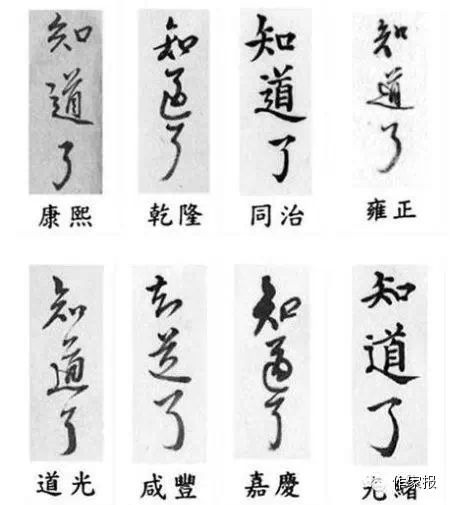 知道了
知道了
知道了
知道了
康熙
乾隆
同治
雍正
知道了
知道了
知道了
知道了
道光
咸豐
嘉慶
光緒
作家报